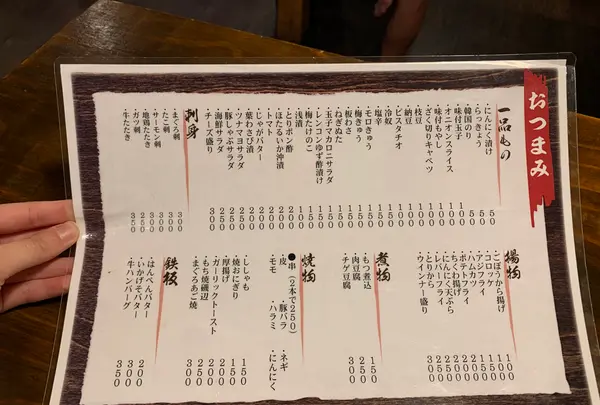 おつまみ
一品もの
・にんにく漬け 50
・らっきょう 50
・韓国のり 50
・味付玉子
・オニオンスライス
・味付もやし
・ざく切りキャベツ
・枝豆
・納豆
・ピスタチオ
・冷奴
・塩辛
・モロきゅう
・梅きゅう
・板わさ
・ねぎぬた
・玉子マカロニサラダ
・レンコンゆず酢漬け
・梅たけのこ
・浅漬
・とりポン酢
・ほたるいか沖漬
・トマト
・じゃがバター
・葉わさび漬
・ツナマヨサラダ
・豚しゃぶサラダ
・海鮮サラダ
・チーズ盛り
刺身
・まぐろ刺 300
・たこ刺 300
・サーモン刺 300
・地鶏たたき 350
・ガツ刺 350
・牛たたき 350
揚物
・ごぼうから揚げ
・コロッケ
・アジフライ
・ハムカツ
・ポテトフライ
・ちくわ揚げ
・にんにく天ぷら
・レバーフライ
・とりから
・ウインナー盛り
煮物
・もつ煮込 150
・肉豆腐 200
・チゲ豆腐 350
焼物
●串(2本で250)
・皮 ・豚バラ ・ネギ
・モモ ・ハラミ ・にんにく
・ししゃも 150
・焼おにぎり 150
・厚揚げ 200
・ガーリックトースト 200
・もち焼磯辺 200
・まぐろあご焼 300
鉄板
・はんぺんバター 200
・いかげそバター 300
・牛ハンバーグ 350